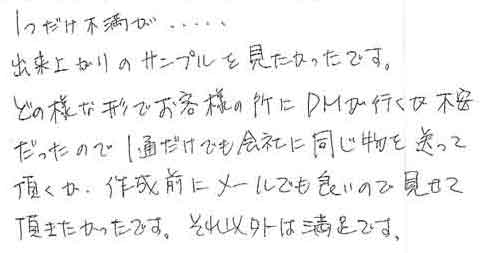 1つだけ不満が.....
出来上がりのサンプルを見たかったです。
どの様な形でお客様の所にDMが行くか不安
だったので1通だけでも会社に同じ物を送って
頂くか、作成前にメールでも良いので見せて
頂きたかったです。それ以外は満足です。